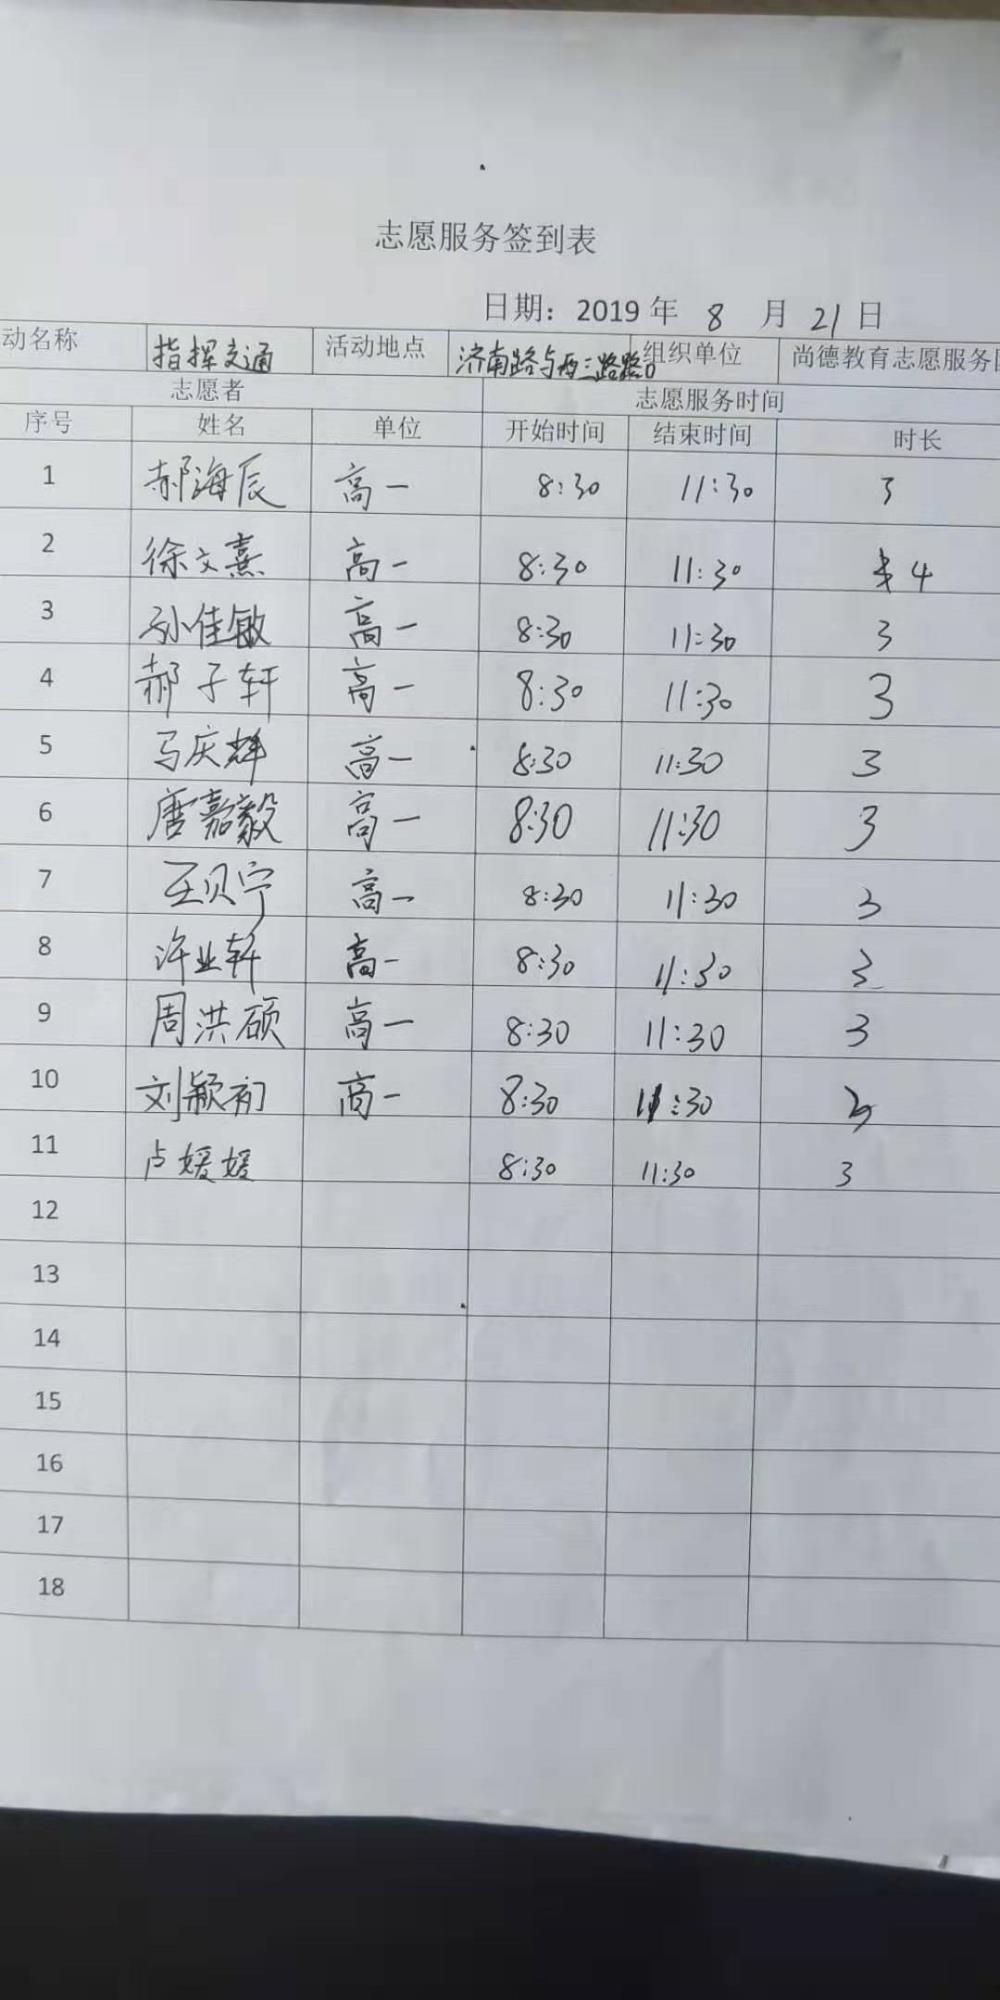 志愿服务签到表
日期：2019 年 8 月 21 日
动名称 指挥交通 活动地点 济南路与西三路路口 组织单位 尚德教育志愿服务
志愿者 志愿服务时间
序号 姓名 单位 开始时间 结束时间 时长
1 郝海辰 高一 8:30 11:30 3
2 徐文熹 高一 8:30 11:30 4
3 孙佳敏 高一 8:30 11:30 3
4 郝子轩 高一 8:30 11:30 3
5 马庆辉 高一 8:30 11:30 3
6 唐嘉毅 高一 8:30 11:30 3
7 王贝宁 高一 8:30 11:30 3
8 许业轩 高一 8:30 11:30 3
9 周洪硕 高一 8:30 11:30 3
10 刘颖初 高一 8:30 11:30 3
11 卢媛媛 8:30 11:30 3
12
13
14
15
16
17
18